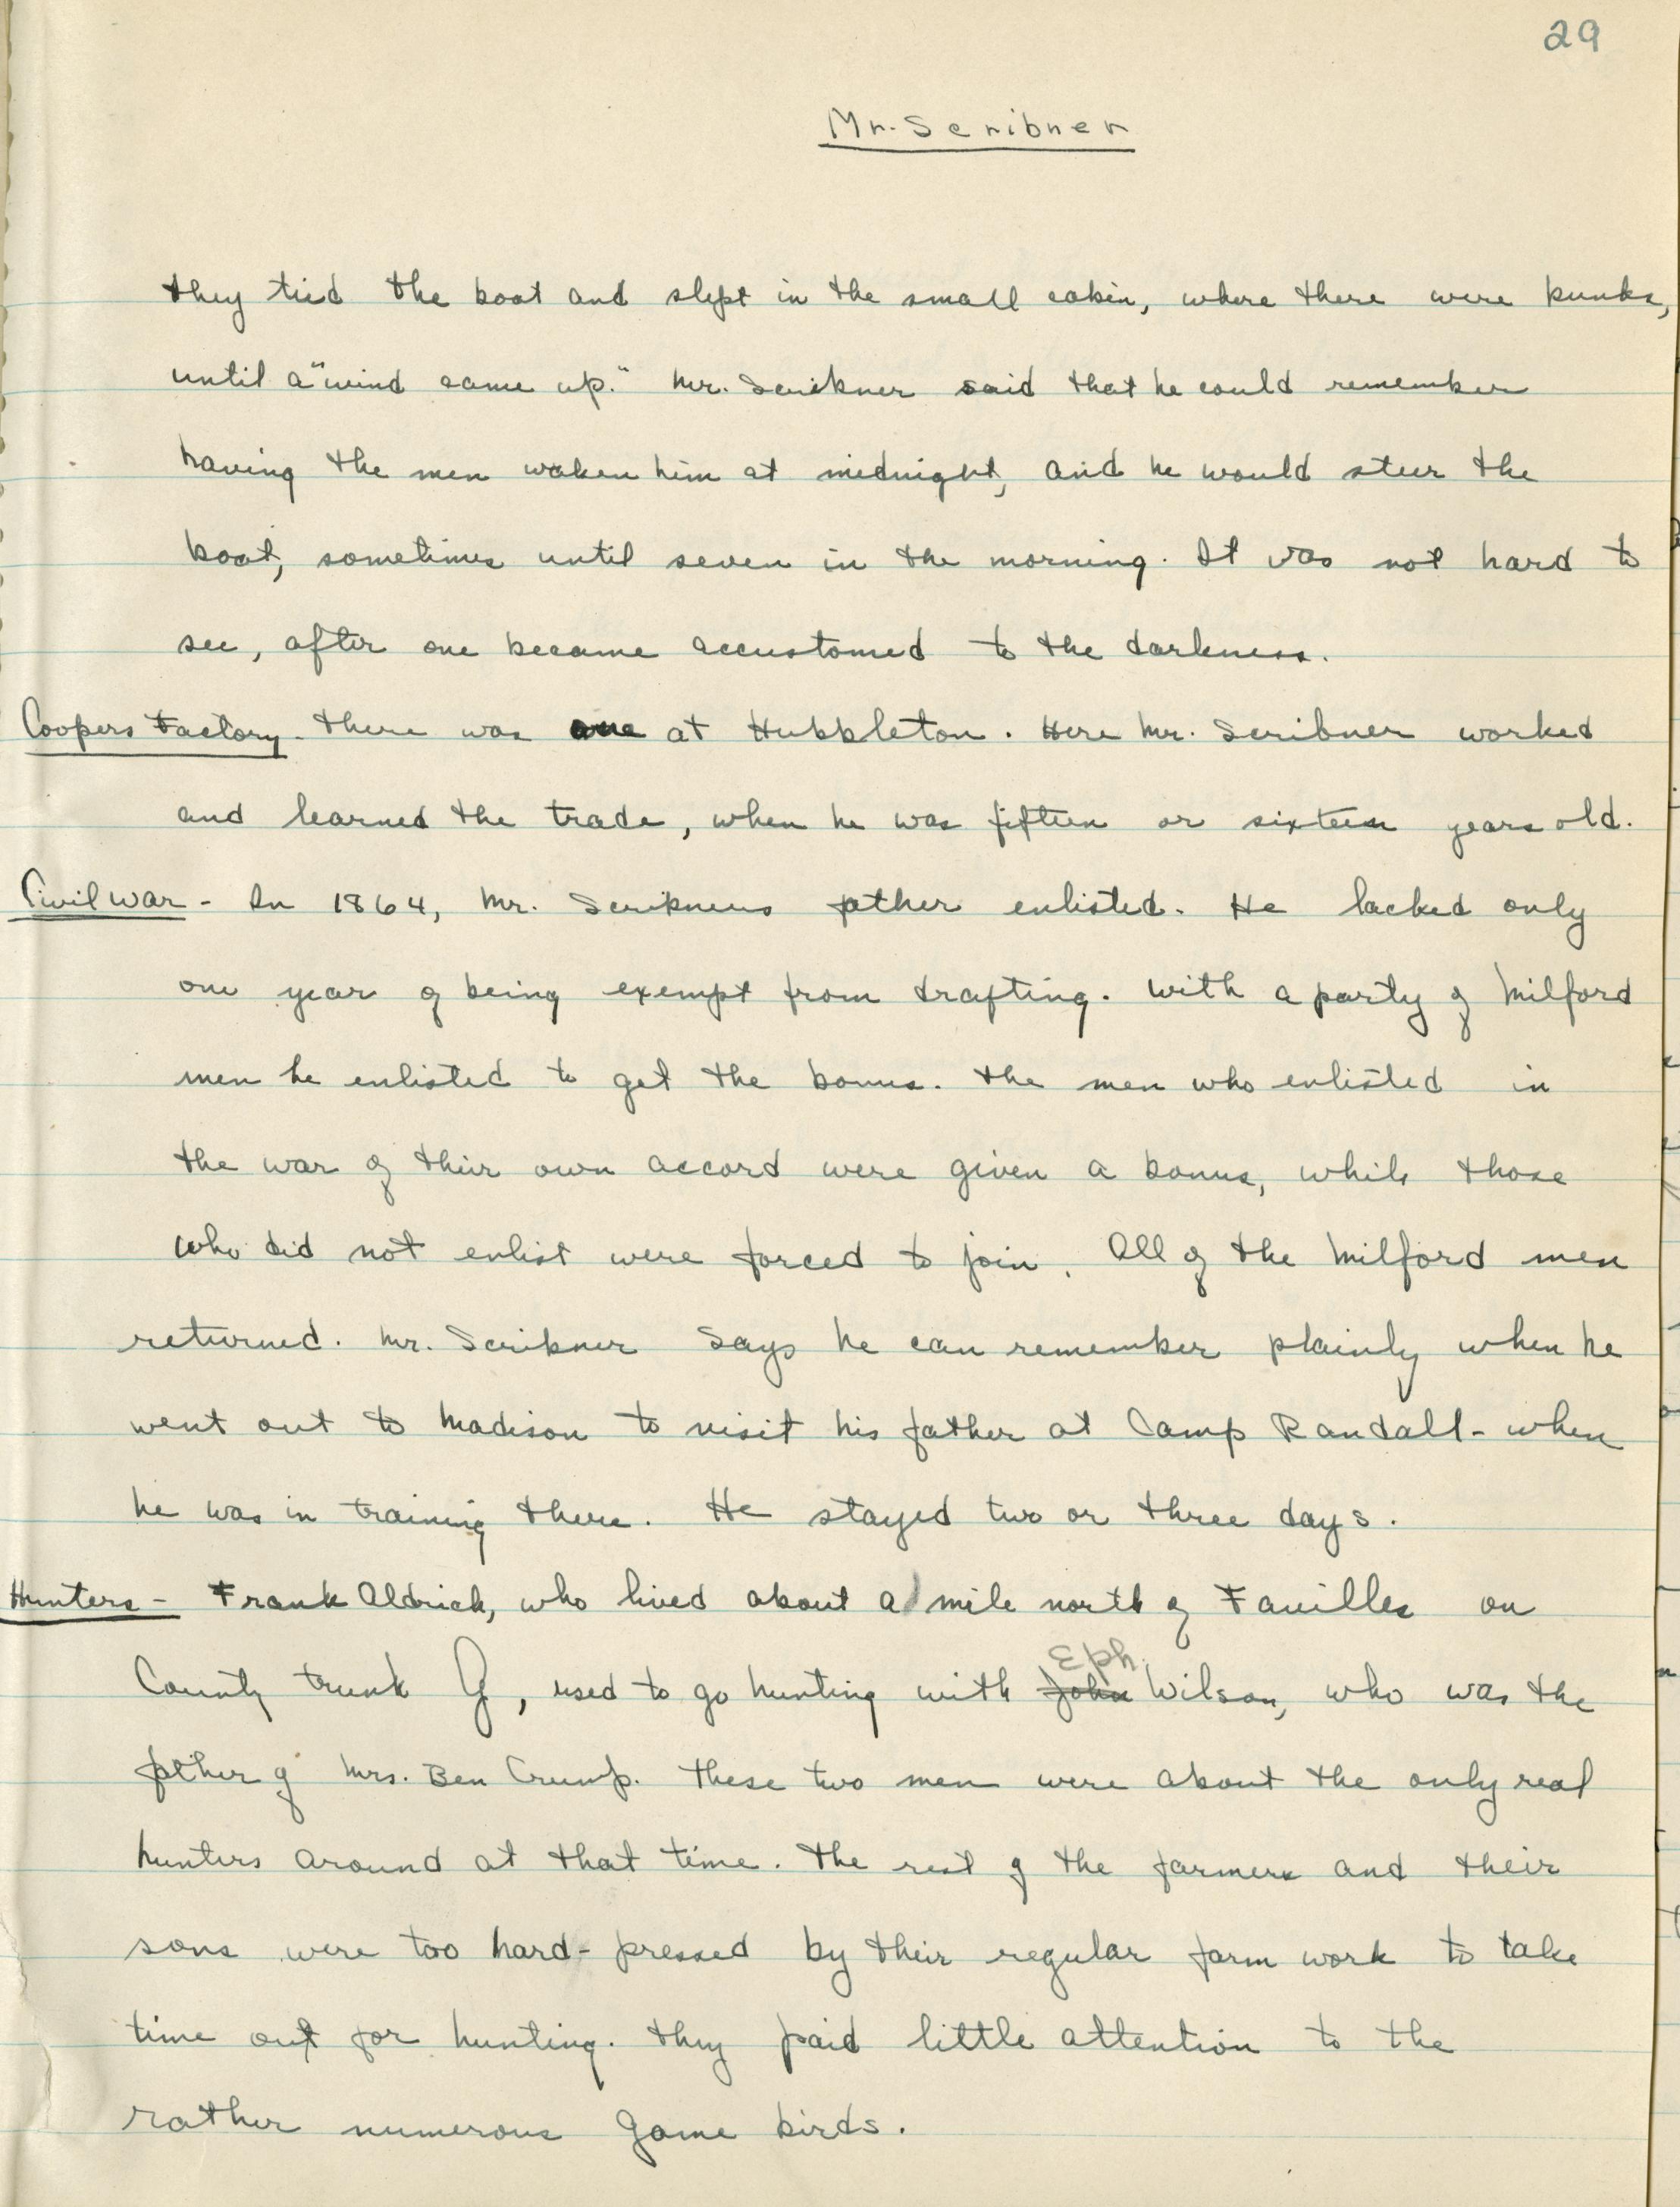 29
Mr. Scribner
they tied the boat and slept in the small cabin, where there were bunks,
until a "wind came up." Mr. Scribner said that he could remember
having the men waken him at midnight, and he would steer the
boat, sometimes until seven in the morning. It was not hard to
see, after one became accustomed to the darkness.
Coopers Factory - There was one at Hubbleton. Here Mr. Scribner worked
and learned the trade, when he was fifteen or sixteen years old.
Civil War - In 1864, Mr. Scribners father enlisted. He lacked only
one year of being exempt from drafting. With a party of Milford
men he enlisted to get the bonus. The men who enlisted in
the war of their own accord were given a bonus, while those
who did not enlist were forced to join. All of the Milford men
returned. Mr. Scribner says he can remember plainly when he
went out to Madison to visit his father at Camp Randall - when
he was in training there. He stayed two or three days.
Hunters - Frank Aldrich, who lived about a mile north of Favilles on
Eph.
County trunk G, used to go hunting with John Wilson, who was the
father of Mrs. Ben Crump. These two men were about the only real
hunters around at that time. The rest of the farmers and their
sons were too hard-pressed by their regular farm work to take
time out for hunting. They paid little attention to the
rather numerous game birds.